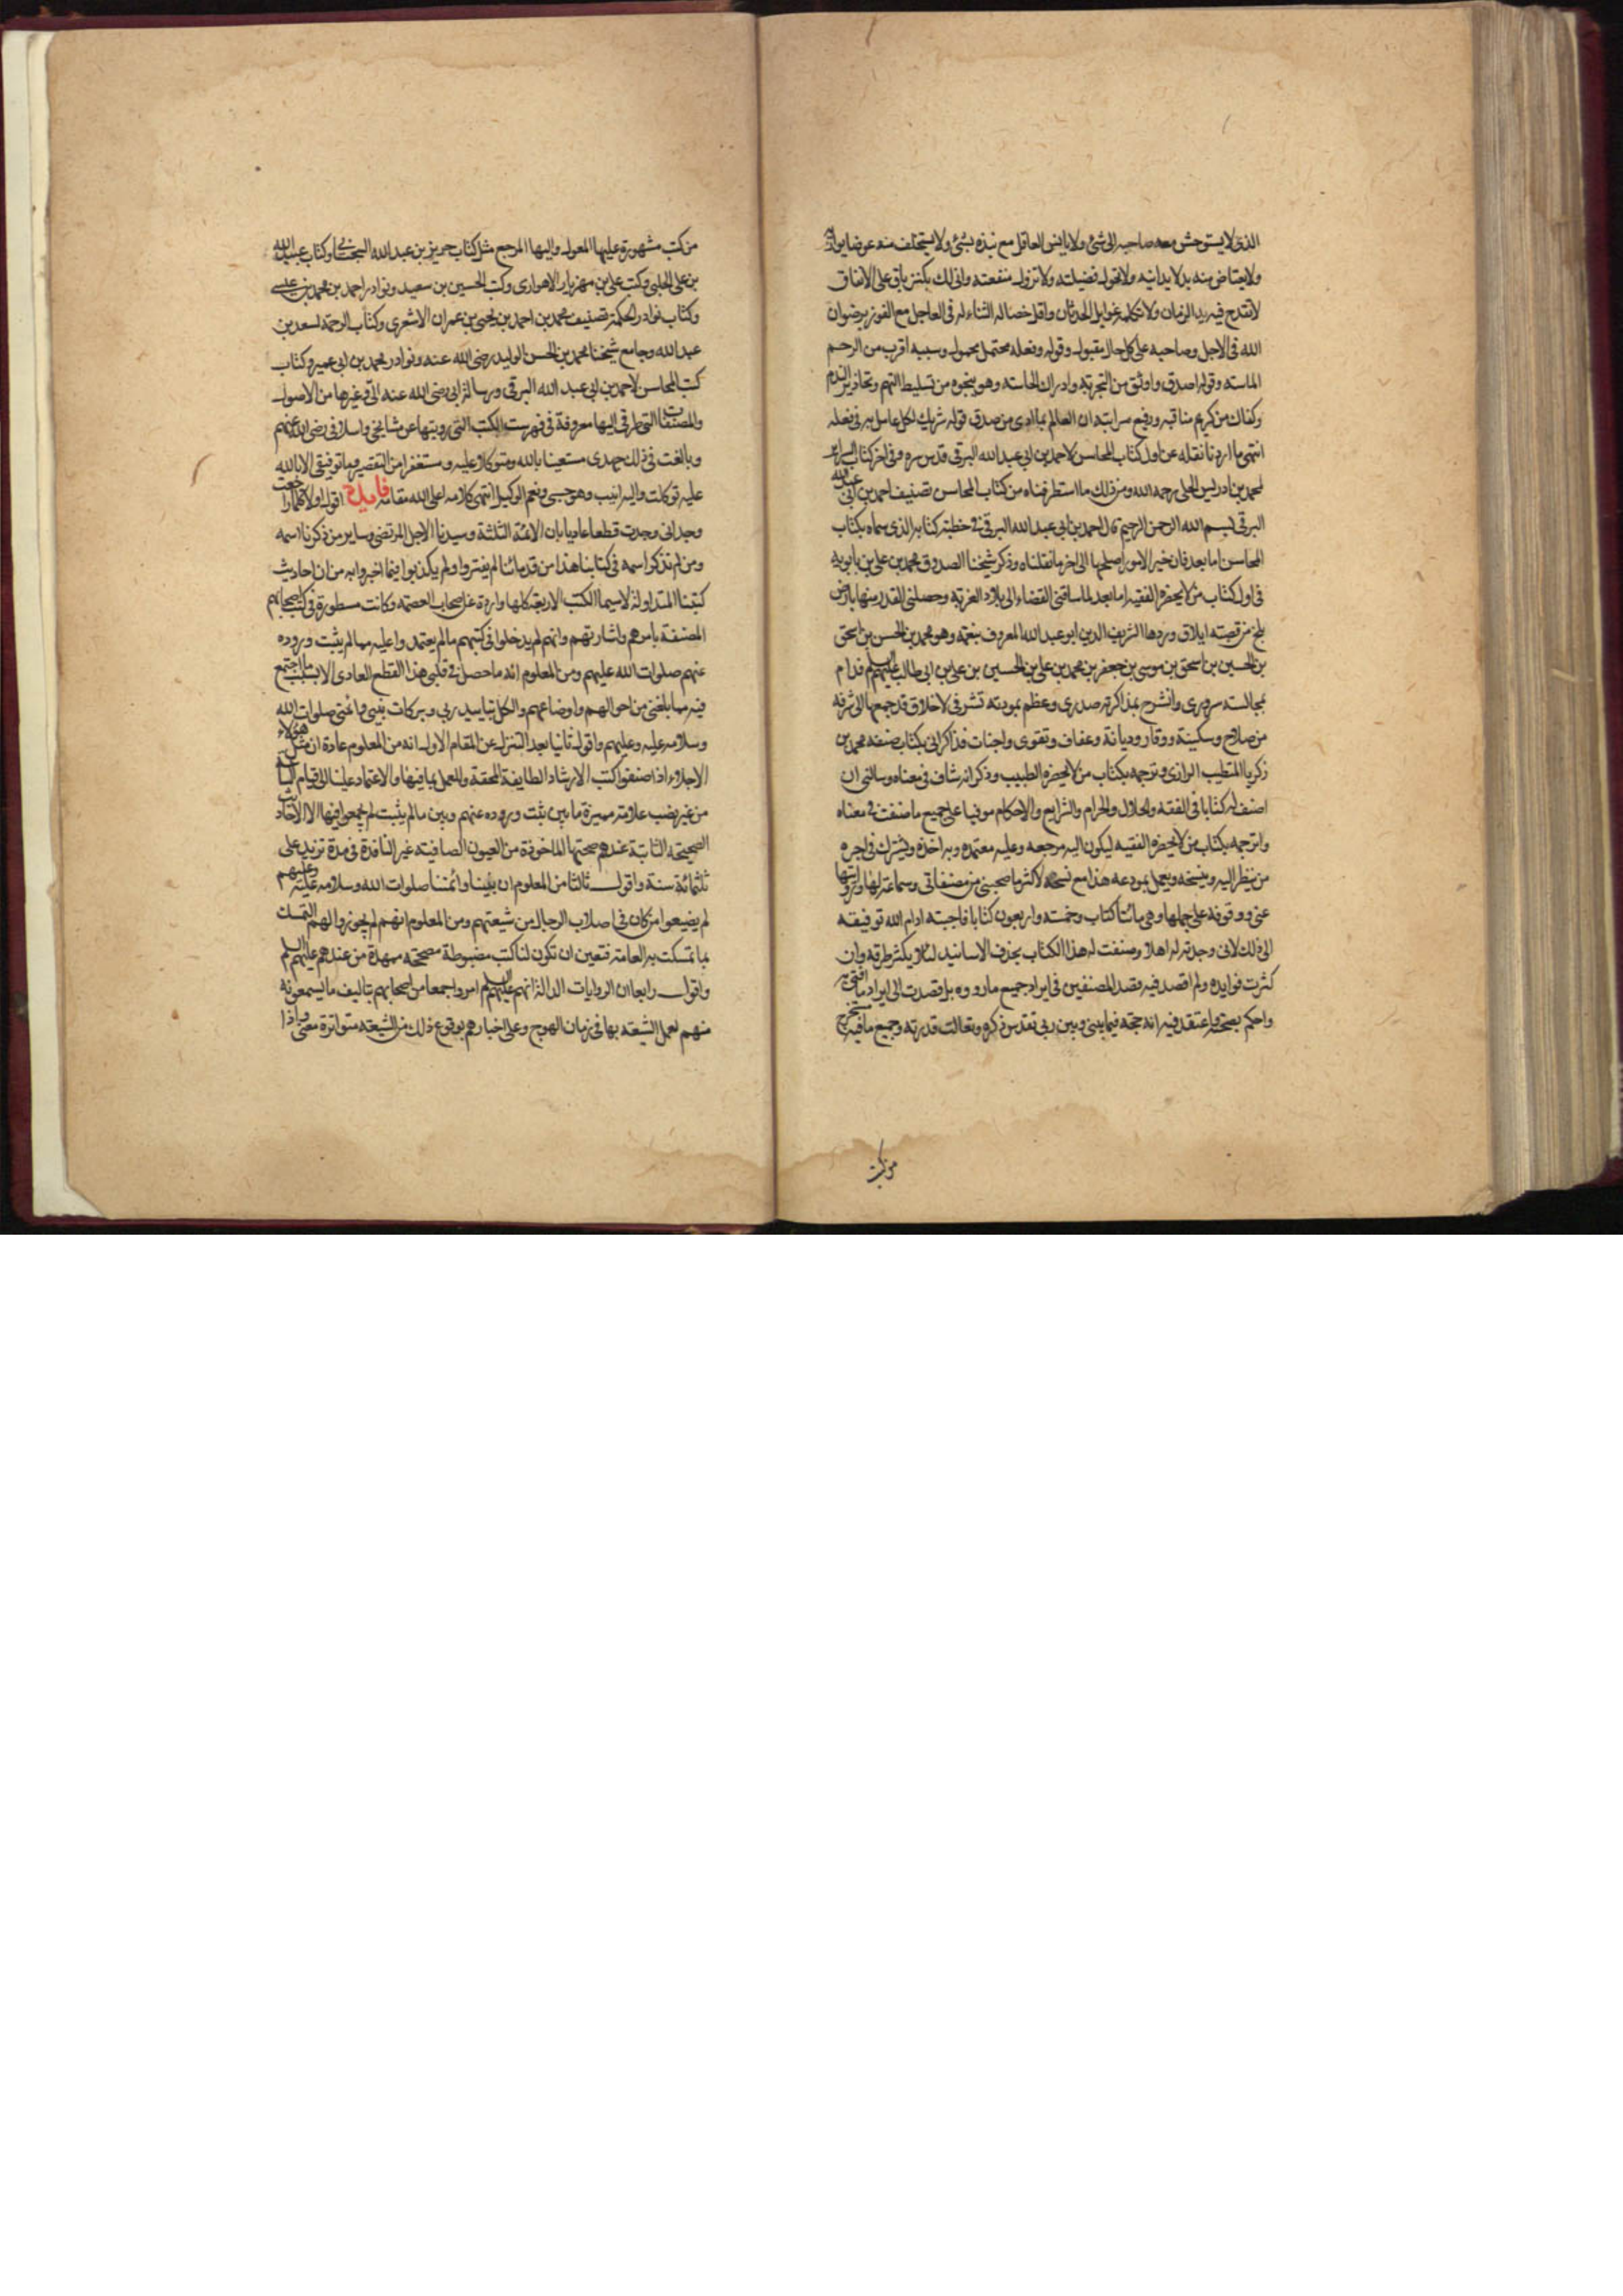 الذى لا يستوحش معه صاحبه الى شئ ولا يانس العاقل مع نبذه بشئ ولا يستخلف منه عوضا يوازيه
ولا يعتاض منه بدلا يدانيه ولا تحول فضيلته ولا تزول منفعته وانى لك بكنز باق على الانفاق
لا تقدح فيه يد الزمان ولا تكلمه غوايل الحدثان واقل خصاله الثناء له فى العاجل مع الفوز برضوان
الله فى الاجل وصاحبه على كل حال مقبول وقوله وفعله محتمل محمول وسببه اقرب من الرحم
الماسة وقوله اصدق واوثق من التجربة وادراك الحاسة وهو بنجوه من تسليط التهم وتحاذير الندم
وكفاك من كريم مناقبه ورفيع مراتبه ان العالم بما ادى من صدق قوله شريك لكل عامل به فى فعله
انتهى ما اردنا نقله عن اول كتاب المحاسن لاحمد بن ابى عبد الله البرقى قدس سره وفى اخر كتاب السرائر
لمحمد بن ادريس الحلى رحمه الله ومن ذلك ما استطرفناه من كتاب المحاسن تصنيف احمد بن ابى عبد الله
البرقى بسم الله الرحمن الرحيم قال احمد بن ابى عبد الله البرقى فى خطبة كتابه الذى سماه بكتاب
المحاسن اما بعد فان خير الامور اصلحها الى اخر ما نقلناه وذكر شيخنا الصدوق محمد بن على بن بابويه
فى اول كتاب من لا يحضره الفقيه اما بعد لما ساقنى القضاء الى بلاد الغربة وحصلنى القدر منها بارض
بلخ من قصبة ايلاق وردها الشريف الدين ابو عبد الله المعروف بنعمة وهو محمد بن الحسن بن اسحق
بن الحسين بن اسحق بن موسى بن جعفر بن محمد بن على بن الحسين بن على بن ابى طالب عليهم السلم فدام
بمجالسته سرورى وانشرح بمذاكرته صدرى وعظم بمودته تشرفى لاخلاق قد جمعها الى شرفه
من صلاح وسكينة ووقار وديانة وعفاف وتقوى واخبات فذاكرنى بكتاب صنفه محمد بن
زكريا المتطبب الرازى وترجمه بكتاب من لا يحضره الطبيب وذكر انه شاف فى معناه وسالنى ان
اصنف له كتابا فى الفقه والحلال والحرام والشرايع والاحكام موفيا على جميع ما صنفت فى معناه
واترجمه بكتاب من لا يحضره الفقيه ليكون اليه مرجعه وعليه معتمده وبه اخذه ويشترك فى اجره
من ينظر اليه وينسخه ويعمل بمودعه هذا مع نسخه لاكثر ما صحبنى من مصنفاتى وسماعه لها وروايتها
عنى ووقوفه على جملها وهى مائتا كتاب وخمسة واربعون كتابا فاجبته ادام الله توفيقه
الى ذلك لانى وجدته له اهلا وصنفت له هذا الكتاب بحذف الاسانيد لئلا يكثر طرقه وان
كثرت فوايده ولم اقصد فيه قصد المصنفين فى ايراد جميع ما رووه بل قصدت الى ايراد ما افتى به
واحكم بصحته واعتقد فيه انه حجة فيما بينى وبين ربى تقدس ذكره وتعالت قدرته وجميع ما فيه مستخرج
من كتب
من كتب مشهورة عليها المعول واليها المرجع مثل كتاب حريز بن عبد الله السجستانى وكتاب عبيد الله
بن على الحلبى وكتب على بن مهزيار الاهوازى وكتب الحسين بن سعيد ونوادر احمد بن محمد بن عيسى
وكتاب نوادر الحكمة تصنيف محمد بن احمد بن يحيى بن عمران الاشعرى وكتاب الرحمة لسعد بن
عبد الله وجامع شيخنا محمد بن الحسن الوليد رضى الله عنه ونوادر محمد بن ابى عمير وكتاب
كتب المحاسن لاحمد بن ابى عبد الله البرقى ورسالة ابى رضى الله عنه الى وغيرها من الاصول
والمصنفات التى طرقى اليها معروفة فى فهرست الكتب التى رويتها عن مشايخى واسلافى رضى الله عنهم
وبالغت فى ذلك جهدى مستعينا بالله ومتوكلا عليه ومستغفرا من التقصير وما توفيقى الا بالله
عليه توكلت واليه انيب وهو حسبى ونعم الوكيل انتهى كلامه اعلى الله مقامه فايدة اقول اولا كلما راجعت
وجدانى وجدت قطعا عاديا بان الائمة الثلثة وسيدنا الاجل المرتضى وساير من ذكرنا اسمه
ومن لم نذكر اسمه فى كتابنا هذا من قدمائنا لم يفتروا ولم يكذبوا فيما اخبروا به من ان احاديث
كتبنا المتداولة لا سيما الكتب الاربعة كلها واردة عن اصحاب العصمة وكانت مسطورة فى كتب اصحابهم
المصنفة بامرهم واشارتهم وانهم لم يدخلوا فى كتبهم ما لم يعتمدوا عليه مما لم يثبت وروده
عنهم صلوات الله عليهم ومن المعلوم انه ما حصل فى قلبى هذا القطع العادى الا بسبب ما اجتمع
فيه مما بلغنى من احوالهم واوضاعهم والكل بتاييد ربى وبركات نبيى وائمتى صلوات الله
وسلامه عليه وعليهم واقول ثانيا بعد التنزل عن المقام الاول انه من المعلوم عادة ان مثل هؤلاء
الاجلاء اذا صنفوا كتب الارشاد الطايفة المحقة وللعمل بما فيها والاعتماد عليها الى قيام الساعة
من غير نصب علامة مميزة ما بين ثبت وروده عنهم وبين ما لم يثبت لم يجمعوا فيها الا الاحاديث
الصحيحة الثابتة عندهم صحتها الماخوذة من العيون الصافية غير النافدة فى مدة تزيد على
ثلثمائة سنة واقول ثالثا من المعلوم ان نبينا وائمتنا صلوات الله وسلامه عليه وعليهم
لم يضيعوا من كان فى اصلاب الرجال من شيعتهم ومن المعلوم انهم لم يجوزوا لهم التمسك
بما تمسكت به العامة فتعين ان تكون لنا كتب مضبوطة مصححة ممهدة من عندهم عليهم السلم
واقول رابعا ان الروايات الدالة انهم عليهم السلم امروا جمعا من اصحابهم بتاليف ما يسمعونه
منهم لعمل الشيعة بها فى زمان الهرج وعلى اخبارهم بوقوع ذلك من الشيعة متواترة معنى واذا